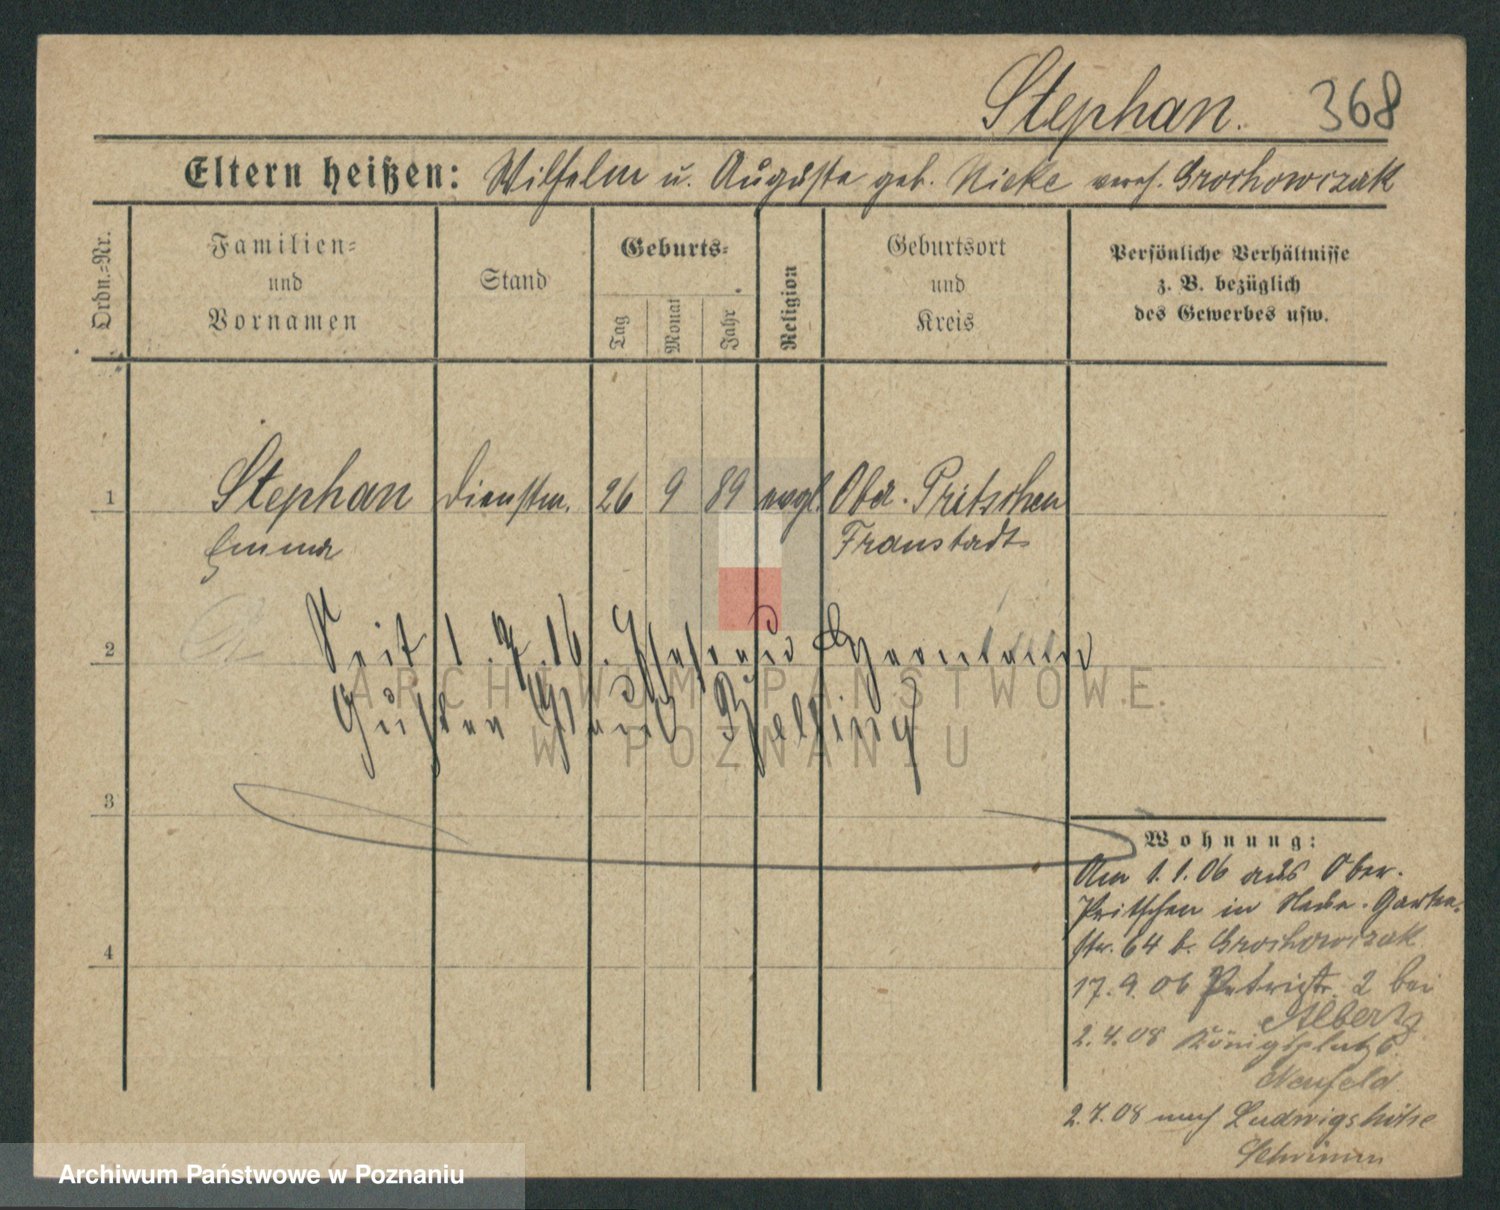 Stephan. 368
Eltern heißen: Wilhelm u. Auguste geb. Nieke verh. Grochowczak
Ordn.=Nr.
Familien=
und
Vornamen
Stand
Geburts=
Tag
Monat
Jahr
Religion
Geburtsort
und
Kreis
Persönliche Verhältnisse
z. B. bezüglich
des Gewerbes usw.
1 Stephan Dienstm. 26 9 89 evgl. Ober-Pritschen
Emma Fraustadt
2 Seit 1.7.16. Ehefrau
Gustav
3
4
Wohnung:
Am 1.1.06 aus Ober-
Pritschen in
str. 64 b. Grochowczak
17.9.06 Petristr. 2 bei
Albertz
2.4.08 Königsplatz 6.
Neufeld
2.7.08 nach Ludwigshöhe
Schrimm
ARCHIWUM PAŃSTWOWE
W POZNANIU
Archiwum Państwowe w Poznaniu